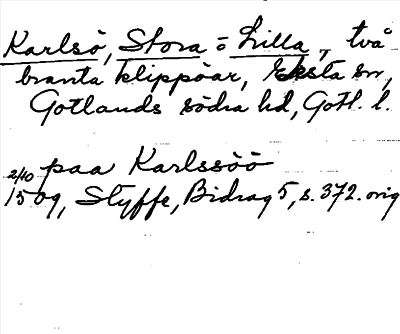 Karlsö, Stora o Lilla, två
branta klippöar, Eksta sn,
Gotlands södra hd, Gotl. l.
paa Karlssöö
2/10 1509, Styffe, Bidrag 5, s. 372. orig